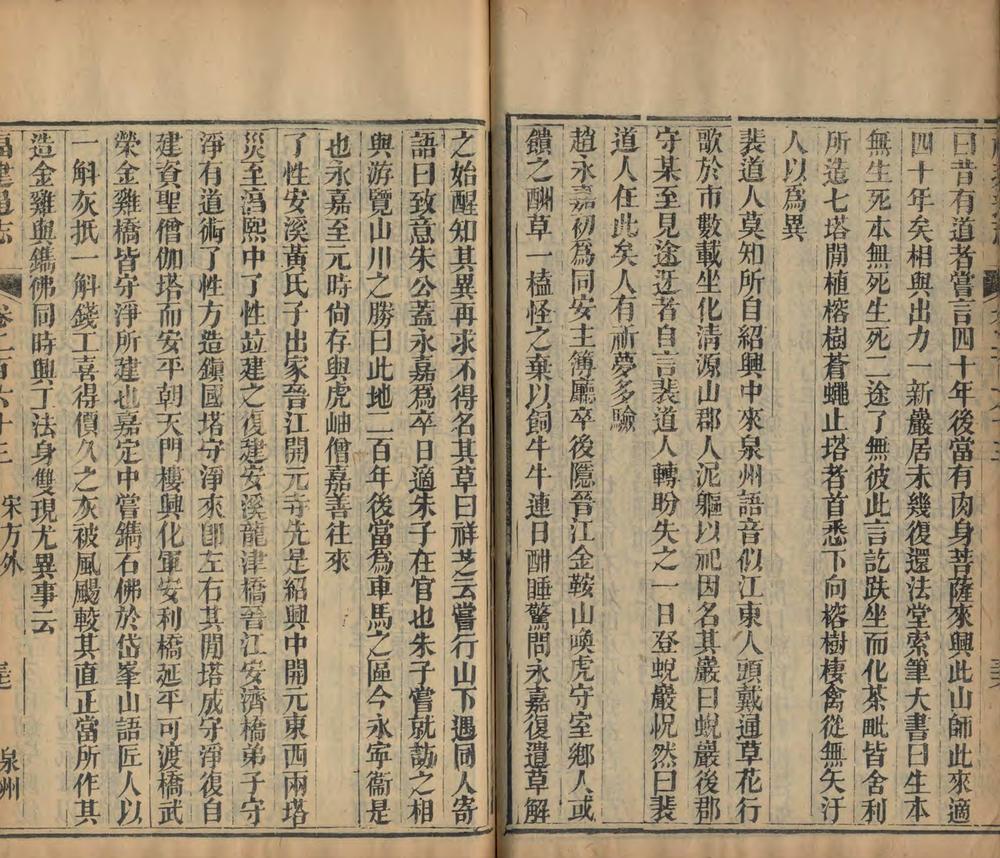 曰昔有道者嘗言四十年後當有肉身菩薩來興此山師此來適
四十年矣相與出力一新巖居未幾復還法堂索筆大書曰生本
無生死本無死生死二途了無彼此言訖趺坐而化茶毗皆舍利
所造七塔閒植榕樹蒼蠅止塔者首悉下向榕樹棲禽從無矢汙
人以為異
裴道人莫知所自紹興中來泉州語音似江東人頭戴通草花行
歌於市數載坐化清源山郡人泥軀以祀因名其巖曰蛻巖後郡
守某至見途迓者自言裴道人轉盼失之一日登蛻巖怳然曰裴
道人在此矣人有祈夢多驗
趙永嘉初為同安主簿廳卒後隱晉江金鞍山喚虎守室鄉人或
饋之酬草一榼怪之棄以飼牛牛連日酣睡驚問永嘉復遺草解
之始醒知其異再求不得名其草曰祥芝云嘗行山下遇同人寄
語曰致意朱公蓋永嘉為卒日適朱子在官也朱子嘗就訪之相
與游覽山川之勝曰此地二百年後當為車馬之區今永寧衞是
也永嘉至元時尙存與虎岫僧嘉善往來
了性安溪黃氏子出家晉江開元寺先是紹興中開元東西兩塔
災至淳熙中了性竝建之復建安溪龍津橋晉江安濟橋弟子守
淨有道術了性方造鎭國塔守淨來卽左右其閒塔成守淨復自
建資聖僧伽塔而安平朝天門樓興化軍安利橋延平可渡橋武
榮金雞橋皆守淨所建也嘉定中嘗鐫石佛於岱峯山語匠人以
一斛灰抵一斛錢工喜得價久之灰被風颺較其直正當所作其
造金雞與鐫佛同時興工法身雙現尤異事云
福建通志 卷二百六十三 宋方外 泉州